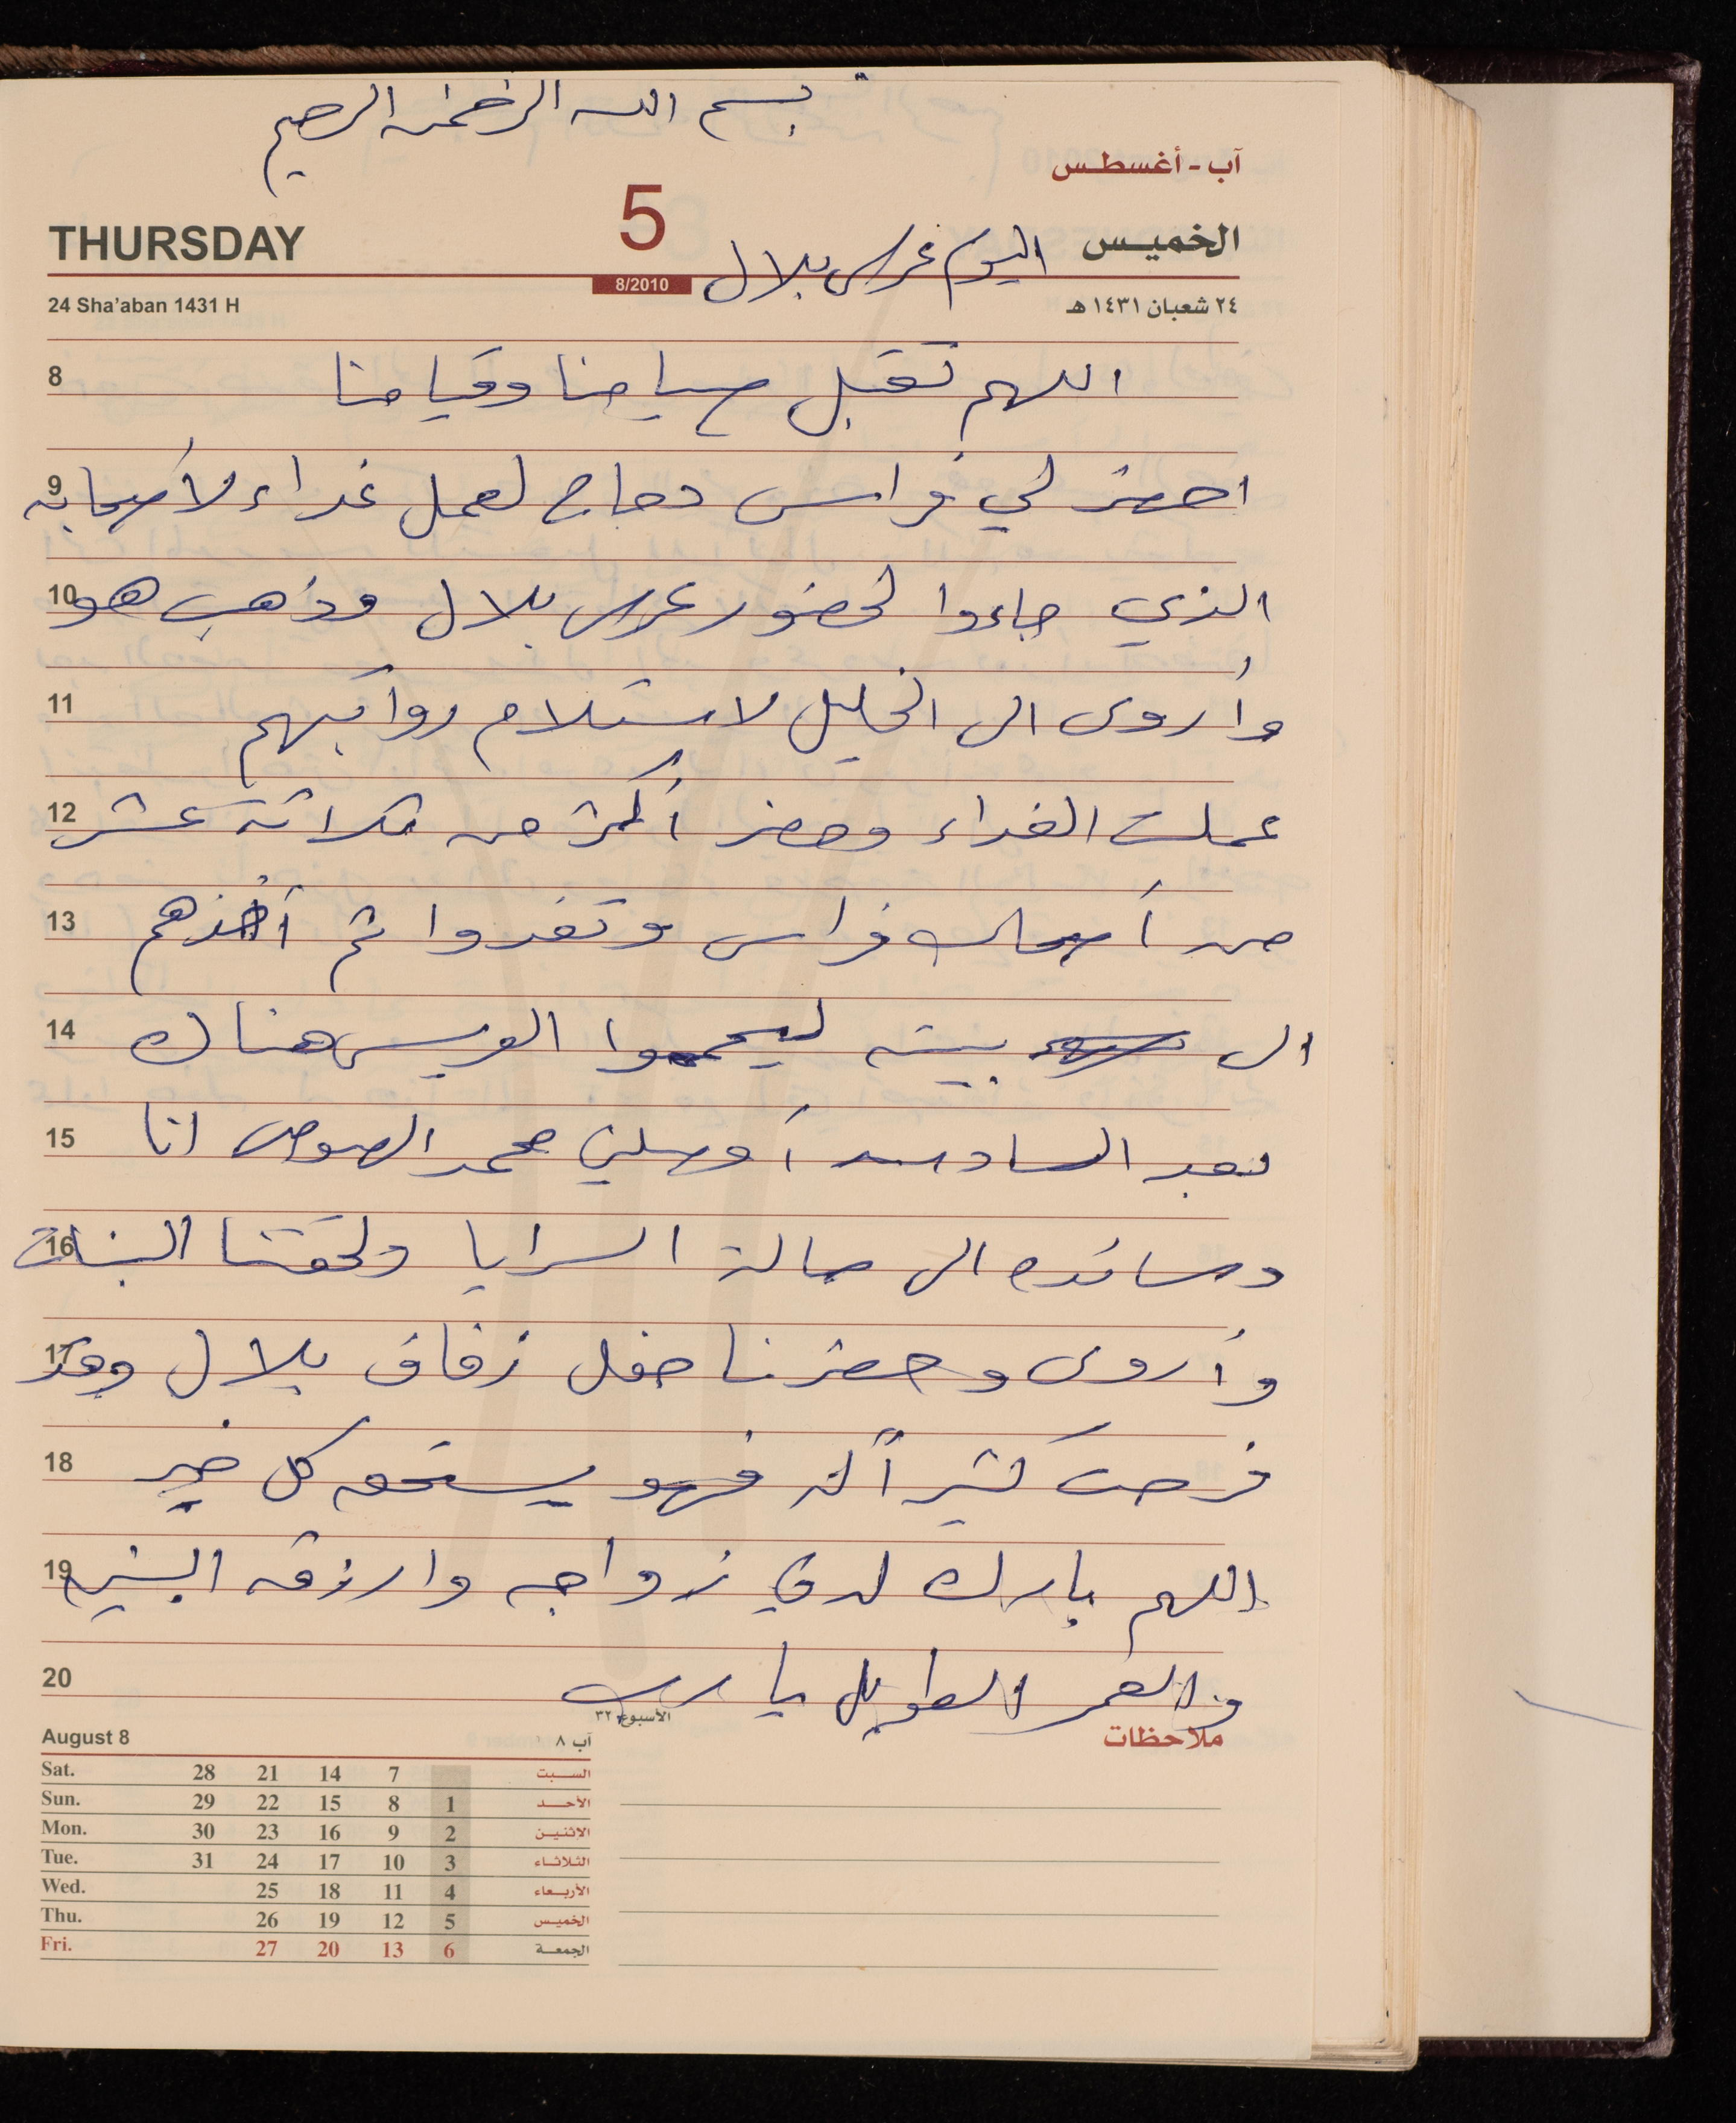 بسم الله الرحمن الرحيم
آب - أغسطس
THURSDAY 5 الخميس
اليوم عرس بلال
8/2010
24 Sha'aban 1431 H ٢٤ شعبان ١٤٣١ هـ
8 اللهم تقبل صيامنا وقيامنا
9 احضر لي فراس دجاج لعمل غداء لأصحابه
10 الذي جاءوا لحضور عرس بلال وذهب هو
11 وأروى الى الخليل لاستلام رواتبهم
12 عملت الغداء وحضر أكثر من ثلاثة عشر
13 من أصحاب فراس وتغدوا ثم أخذهم
14 الى بيته ليحمموا العريس هناك
15 بعد السادسة أوصلني محمد الصوص انا
16 وسائده الى صالة السرايا ولحقتنا البنات
17 وأروى وحضرنا حفل زفاف بلال وقد
18 فرحت كثيراً له فهو يستحق كل خير
19 اللهم بارك له في زواجه وارزقه البنين
20 والعمر الطويل يا رب
الأسبوع ٣٢
ملاحظات
August 8 آب ٨
Sat. 28 21 14 7 السبت
Sun. 29 22 15 8 1 الأحد
Mon. 30 23 16 9 2 الاثنين
Tue. 31 24 17 10 3 الثلاثاء
Wed. 25 18 11 4 الأربعاء
Thu. 26 19 12 5 الخميس
Fri. 27 20 13 6 الجمعة